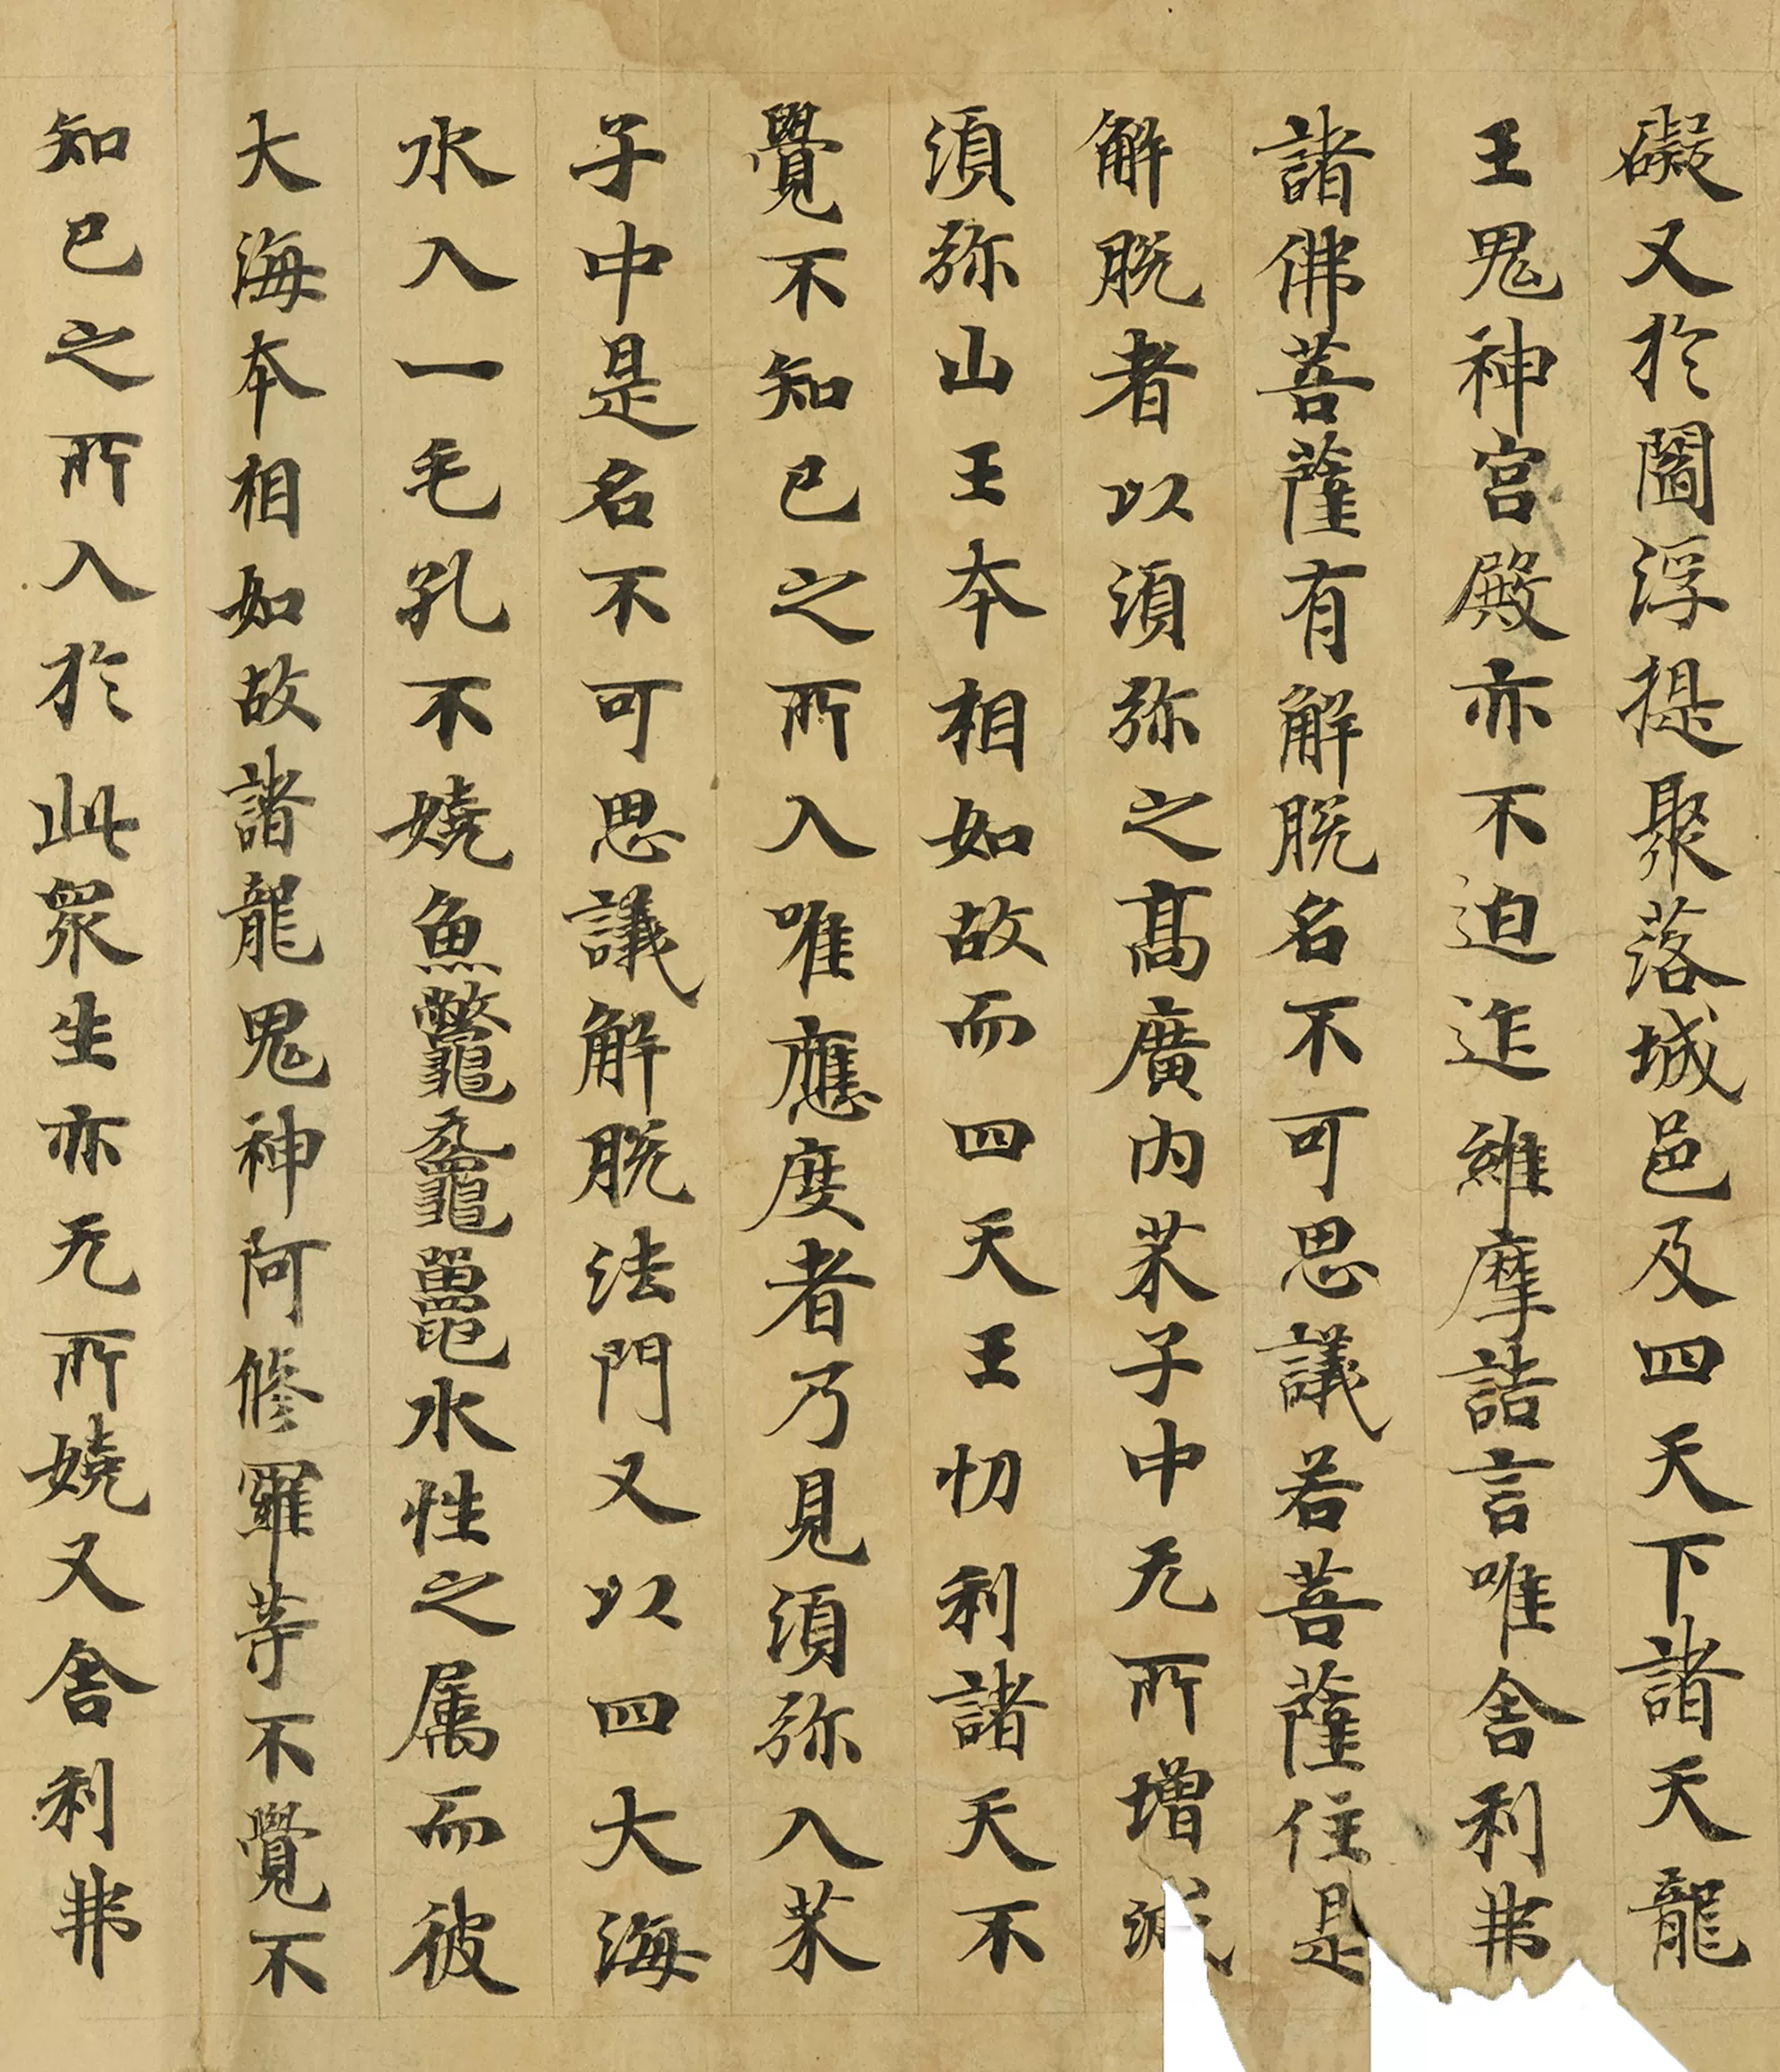 礙又於閻浮提聚落城邑及四天下諸天龍
王鬼神宮殿亦不迫迮維摩詰言唯舍利弗
諸佛菩薩有解脫名不可思議若菩薩住是
解脫者以須弥之高廣內芥子中无所增減
須弥山王本相如故而四天王忉利諸天不
覺不知已之所入唯應度者乃見須弥入芥
子中是名不可思議解脫法門又以四大海
水入一毛孔不嬈魚鼈黿鼉水性之属而彼
大海本相如故諸龍鬼神阿修羅等不覺不
知已之所入於此眾生亦无所嬈又舍利弗